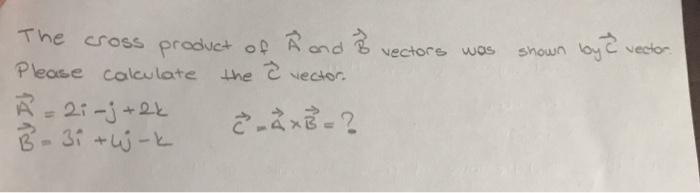 The cross product of A⃗ and B⃗ vectors was shown by C⃗ vector.
Please calculate the C⃗ vector.
A⃗ = 2i - j + 2k
B⃗ = 3i + 4j - k C⃗ = A⃗ x B⃗ = ?